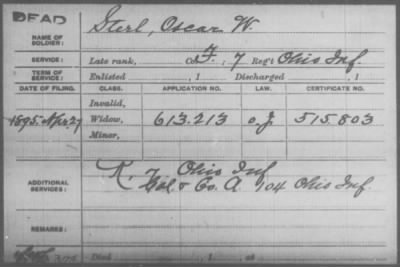 DEAD
NAME OF SOLDIER: Sterl, Oscar W.
SERVICE: Late rank, Co. F, 7 Reg't Ohio Inf.
TERM OF SERVICE: Enlisted , 1 Discharged , 1
DATE OF FILING. CLASS. APPLICATION NO. LAW. CERTIFICATE NO.
Invalid,
1895. Apr. 27 Widow, 613.213 O.L. 515.803
Minor,
ADDITIONAL SERVICES: K, 7 Ohio Inf
Col & Co. A. 104 Ohio Inf.
REMARKS:
Died , 1 , at